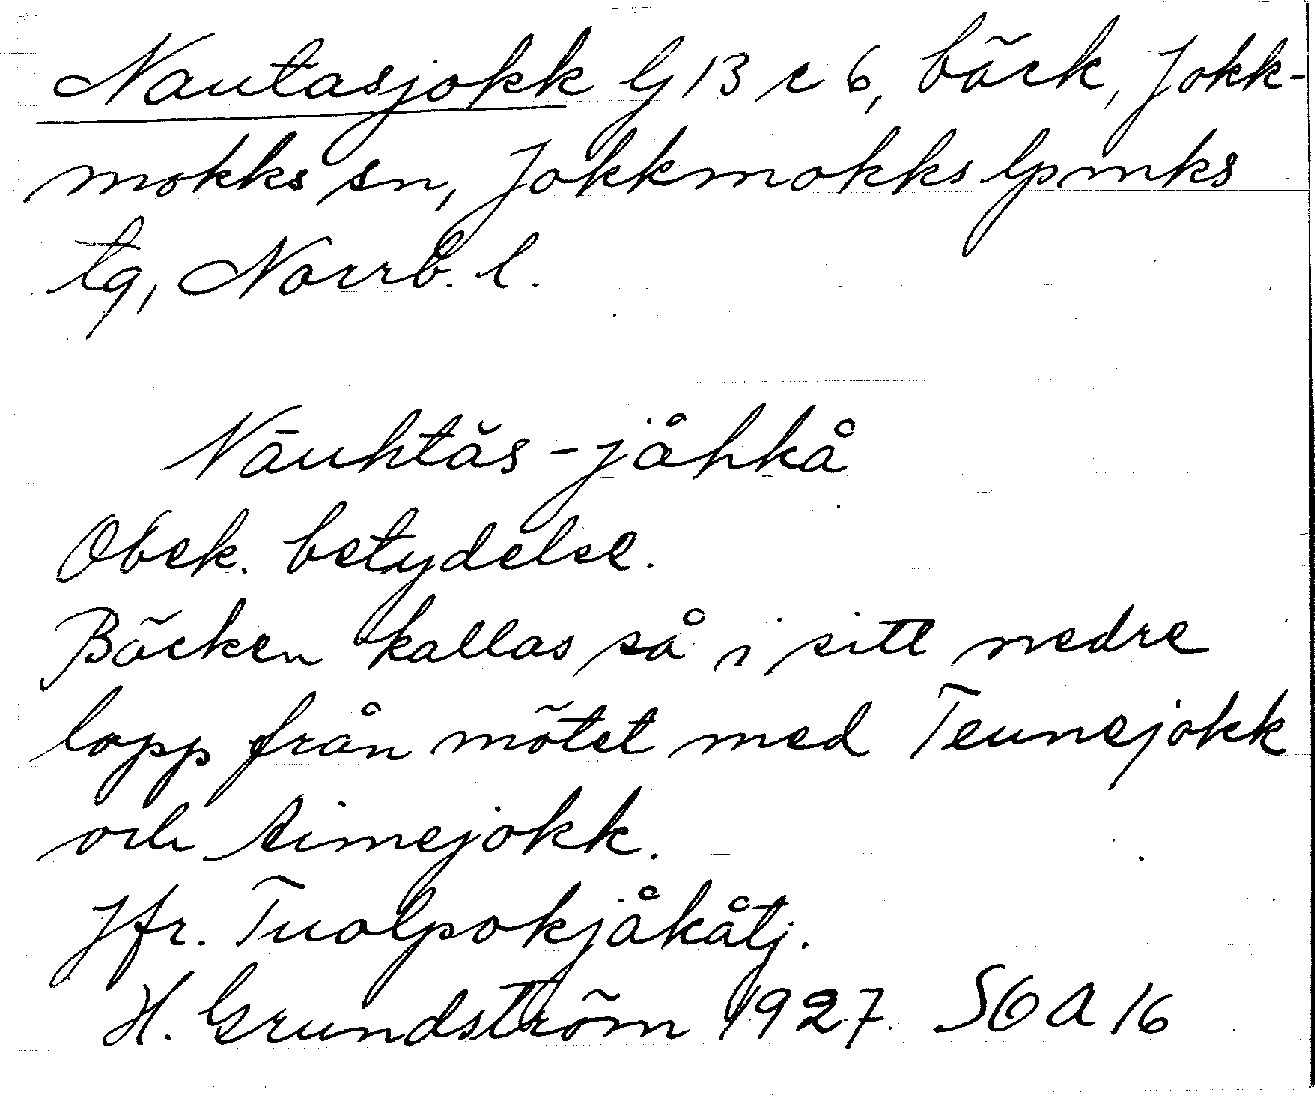 Nautasjokk G 13 c 6, bäck, Jokk-
mokks sn, Jokkmokks lpmks
tg, Norrb. l.
Nāuhtăs-jåhkå
Obek. betydelse.
Bäcken kallas så i sitt nedre
lopp från mötet med Teunejokk
och Aimejokk.
Jfr. Tuolpokjåkåtj.
H. Grundström 1927. S6A16